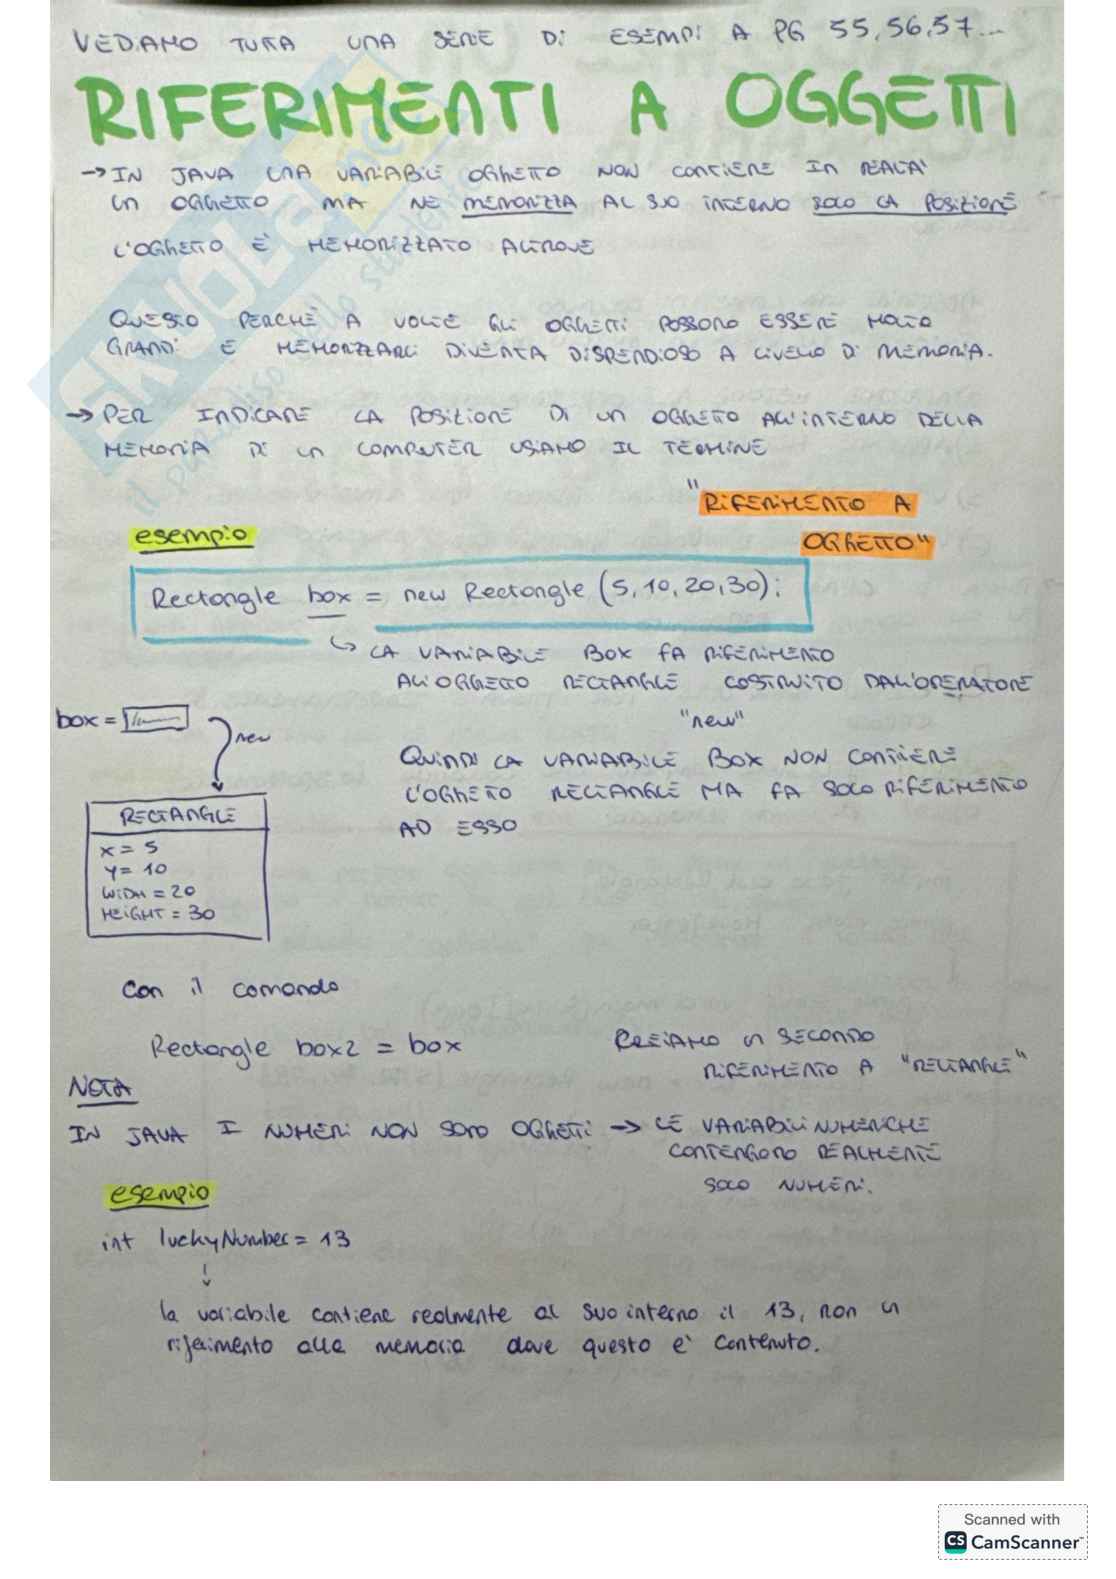 VEDIAMO TUTTA UNA SERIE DI ESEMPI A PG 55,56,57...
RIFERIMENTI A OGGETTI
→ IN JAVA UNA VARIABILE OGGETTO NON CONTIENE IN REALTA'
UN OGGETTO MA NE MEMORIZZA AL SUO INTERNO SOLO LA POSIZIONE
L'OGGETTO È MEMORIZZATO ALTROVE
QUESTO PERCHÈ A VOLTE GLI OGGETTI POSSONO ESSERE MOLTO
GRANDI E MEMORIZZARLI DIVENTA DISPENDIOSO A LIVELLO DI MEMORIA.
→ PER INDICARE LA POSIZIONE DI UN OGGETTO ALL'INTERNO DELLA
MEMORIA DI UN COMPUTER USIAMO IL TERMINE
"RIFERIMENTO A
OGGETTO"
esempio
Rectangle box = new Rectangle (5, 10, 20, 30);
↳ LA VARIABILE BOX FA RIFERIMENTO
ALL'OGGETTO RECTANGLE COSTRUITO DALL'OPERATORE
"new"
box =
new
QUINDI LA VARIABILE BOX NON CONTIENE
L'OGGETTO RECTANGLE MA FA SOLO RIFERIMENTO
AD ESSO
RECTANGLE
X = 5
Y = 10
WIDTH = 20
HEIGHT = 30
Con il comando
Rectangle box2 = box
CREIAMO UN SECONDO
RIFERIMENTO A "RECTANGLE"
NOTA
IN JAVA I NUMERI NON SONO OGGETTI → LE VARIABILI NUMERICHE
CONTENGONO REALMENTE
SOLO NUMERI.
esempio
int luckyNumber = 13
↓
la variabile contiene realmente al suo interno il 13, non un
riferimento alla memoria dove questo è contenuto.
SKUOLA.net
il paradiso dello studente
Scanned with
CS CamScanner